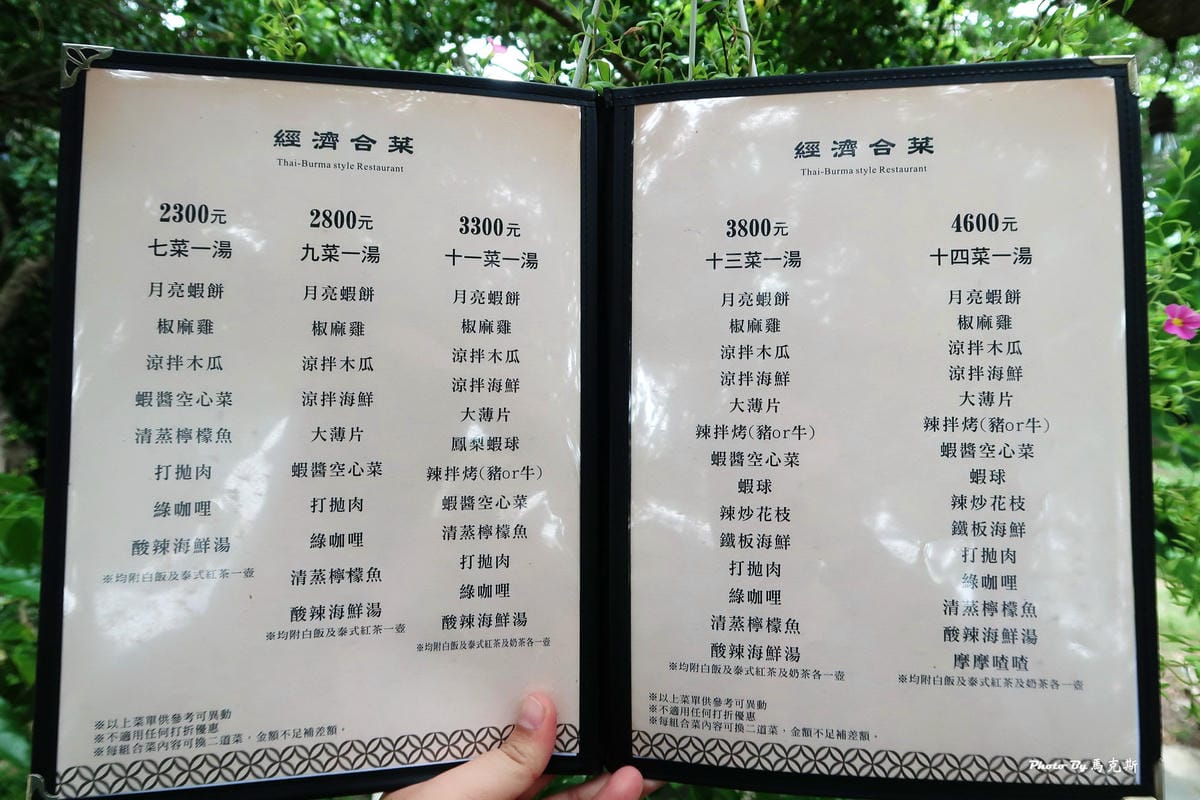 經濟合菜
Thai-Burma style Restaurant
2300元
七菜一湯
月亮蝦餅
椒麻雞
涼拌木瓜
蝦醬空心菜
清蒸檸檬魚
打拋肉
綠咖哩
酸辣海鮮湯
※均附白飯及泰式紅茶一壺
2800元
九菜一湯
月亮蝦餅
椒麻雞
涼拌木瓜
涼拌海鮮
大薄片
蝦醬空心菜
打拋肉
綠咖哩
清蒸檸檬魚
酸辣海鮮湯
※均附白飯及泰式紅茶一壺
3300元
十一菜一湯
月亮蝦餅
椒麻雞
涼拌木瓜
涼拌海鮮
大薄片
鳳梨蝦球
辣拌烤(豬or牛)
蝦醬空心菜
清蒸檸檬魚
打拋肉
綠咖哩
酸辣海鮮湯
※均附白飯及泰式紅茶及奶茶各一壺
※以上菜單供參考可異動
※不適用任何打折優惠
※每組合菜內容可換二道菜，金額不足補差額。
經濟合菜
Thai-Burma style Restaurant
3800元
十三菜一湯
月亮蝦餅
椒麻雞
涼拌木瓜
涼拌海鮮
大薄片
辣拌烤(豬or牛)
蝦醬空心菜
蝦球
辣炒花枝
鐵板海鮮
打拋肉
綠咖哩
清蒸檸檬魚
酸辣海鮮湯
※均附白飯及泰式紅茶及奶茶各一壺
4600元
十四菜一湯
月亮蝦餅
椒麻雞
涼拌木瓜
涼拌海鮮
大薄片
辣拌烤(豬or牛)
蝦醬空心菜
蝦球
辣炒花枝
鐵板海鮮
打拋肉
綠咖哩
清蒸檸檬魚
酸辣海鮮湯
摩摩喳喳
※均附白飯及泰式紅茶及奶茶各一壺
※以上菜單供參考可異動
※不適用任何打折優惠
※每組合菜內容可換二道菜，金額不足補差額。
Photo By 馬克斯